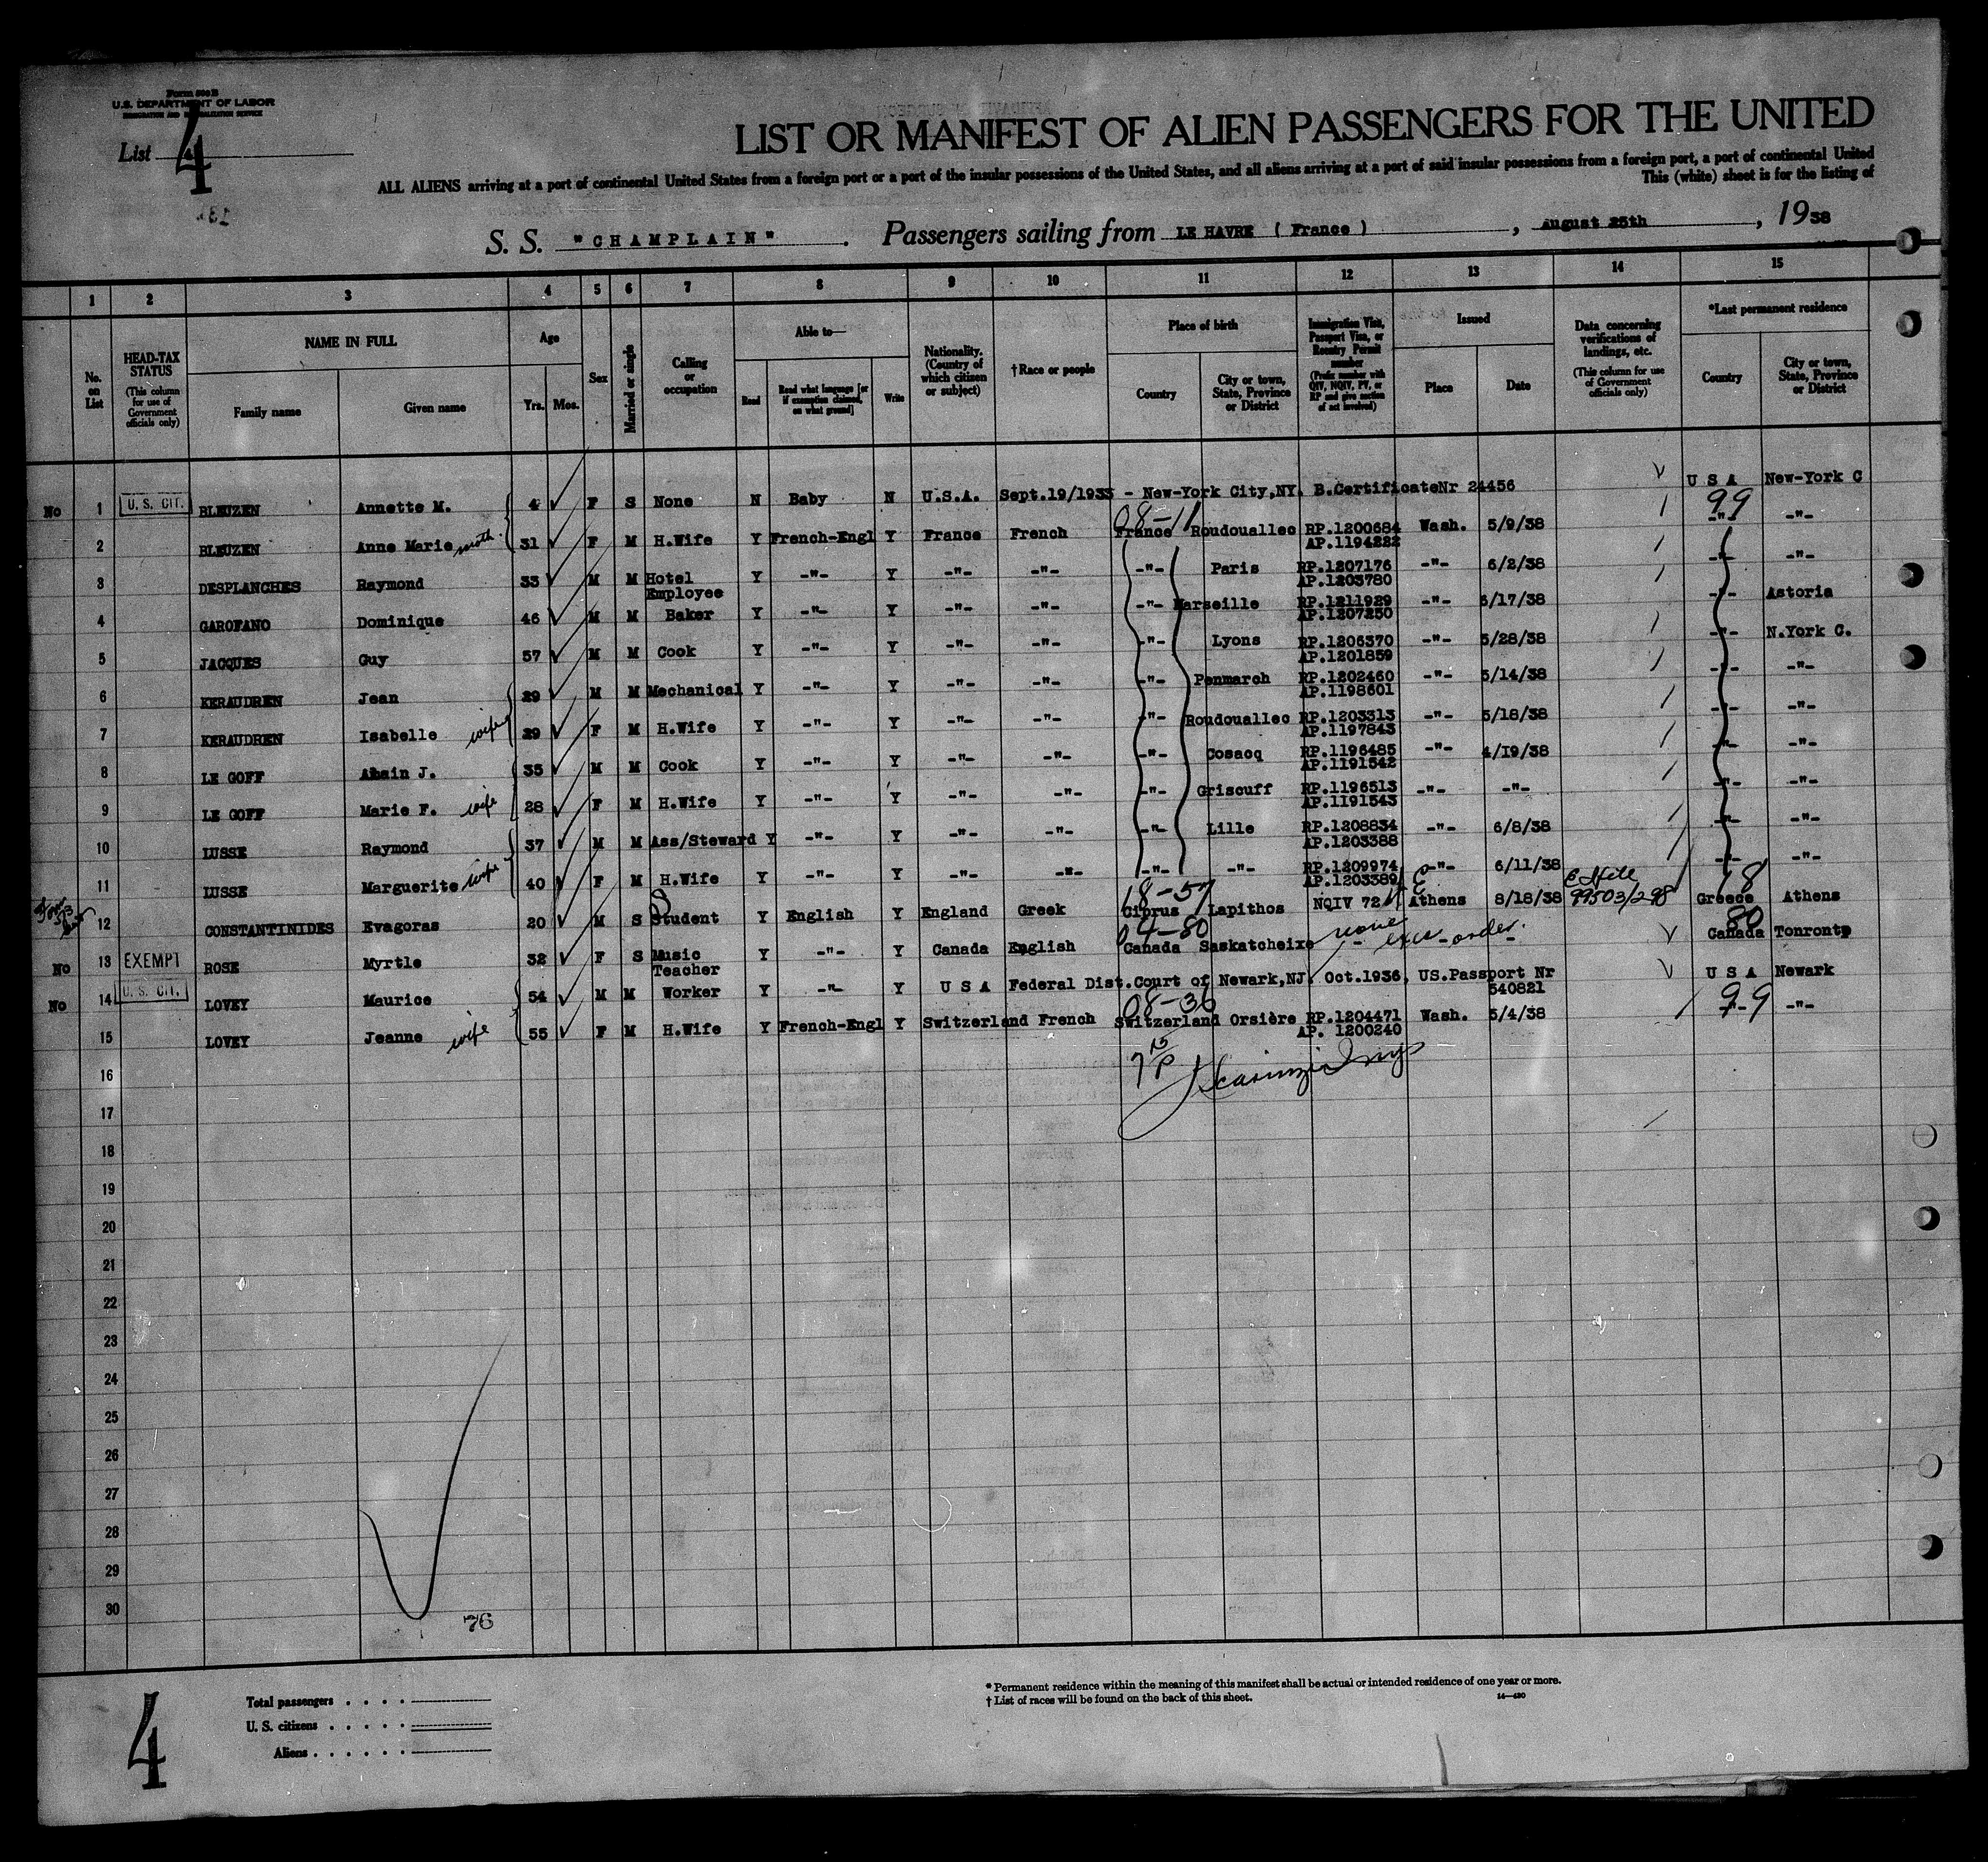 Form 500 B
U.S. DEPARTMENT OF LABOR
IMMIGRATION AND NATURALIZATION SERVICE
List 4
LIST OR MANIFEST OF ALIEN PASSENGERS FOR THE UNITED
ALL ALIENS arriving at a port of continental United States from a foreign port or a port of the insular possessions of the United States, and all aliens arriving at a port of said insular possessions from a foreign port, a port of continental United
This (white) sheet is for the listing of
S. S. "CHAMPLAIN". Passengers sailing from LE HAVRE ( France ), August 25th, 1938
1 2 3 4 5 6 7 8 9 10 11 12 13 14 15
No. on List
HEAD-TAX STATUS
(This column for use of Government officials only)
NAME IN FULL
Family name Given name
Age
Yrs. Mos.
Sex
Married or single
Calling or occupation
Able to—
Read
Read what language [or if exemption claimed, on what ground]
Write
Nationality. (Country of which citizen or subject)
†Race or people
Place of birth
Country
City or town, State, Province or District
Immigration Visa, Passport Visa, or Reentry Permit number
(Prefix number with QIV, NQIV, PV, or RP and give section of act involved)
Issued
Place Date
Data concerning verifications of landings, etc.
(This column for use of Government officials only)
*Last permanent residence
Country
City or town, State, Province or District
No 1 U. S. CIT. BLEUZEN Annette M. 4 F S None N Baby N U.S.A. Sept.19/1933 - New-York City,NY. B.CertificateNr 24456 U S A New-York C
08-11 99
2 BLEUZEN Anne Marie moth. 31 F M H.Wife Y French-Engl Y France French France Roudouallec RP.1200684 Wash. 5/9/38 -"- -"-
AP.1194222
3 DESPLANCHES Raymond 33 M M Hotel Y -"- Y -"- -"- -"- Paris RP.1207176 -"- 6/2/38 -"- -"-
Employee AP.1203780
4 GAROFANO Dominique 46 M M Baker Y -"- Y -"- -"- -"- Marseille RP.1211929 -"- 6/17/38 -"- Astoria
AP.1207250
5 JACQUES Guy 57 M M Cook Y -"- Y -"- -"- -"- Lyons RP.1206370 -"- 5/28/38 -"- N.York C.
AP.1201859
6 KERAUDREN Jean 29 M M Mechanical Y -"- Y -"- -"- -"- Penmarch RP.1202460 -"- 5/14/38 -"- -"-
AP.1198601
7 KERAUDREN Isabelle wife 29 F M H.Wife Y -"- Y -"- -"- -"- Roudouallec RP.1203313 -"- 5/18/38 -"- -"-
AP.1197843
8 LE GOFF Alain J. 35 M M Cook Y -"- Y -"- -"- -"- Cosacq RP.1196485 -"- 4/19/38 -"- -"-
AP.1191542
9 LE GOFF Marie F. wife 28 F M H.Wife Y -"- Y -"- -"- -"- Griscuff RP.1196513 -"- -"- -"- -"-
AP.1191543
10 LUSSE Raymond 37 M M Ass/Steward Y -"- Y -"- -"- -"- Lille RP.1208834 -"- 6/8/38 -"- -"-
AP.1203388
11 LUSSE Marguerite wife 40 F M H.Wife Y -"- Y -"- -"- -"- -"- RP.1209974 -"- 6/11/38 -"- -"-
AP.1203389
18-57 18
12 CONSTANTINIDES Evagoras 20 M S Student Y English Y England Greek Ciprus Lapithos NQIV 72 Athens 8/18/38 99503/298 Greece Athens
04-80 none exec-order. 80
No 13 EXEMPT ROSE Myrtle 32 F S Music Y -"- Y Canada English Canada Saskatcheixe - - - Canada Tonronto
Teacher
No 14 U. S. CIT. LOVEY Maurice 54 M M Worker Y -"- Y U S A Federal Dist.Court of Newark,NJ. Oct.1936, US.Passport Nr U S A Newark
540821
08-36 99
15 LOVEY Jeanne wife 55 F M H.Wife Y French-Engl Y Switzerland French Switzerland Orsière RP.1204471 Wash. 5/4/38 -"- -"-
AP. 1200240
16
17
18
19
20
21
22
23
24
25
26
27
28
29
30
76
Total passengers . . . .
U. S. citizens . . . . .
Aliens . . . . . .
4
* Permanent residence within the meaning of this manifest shall be actual or intended residence of one year or more.
† List of races will be found on the back of this sheet.
14—420